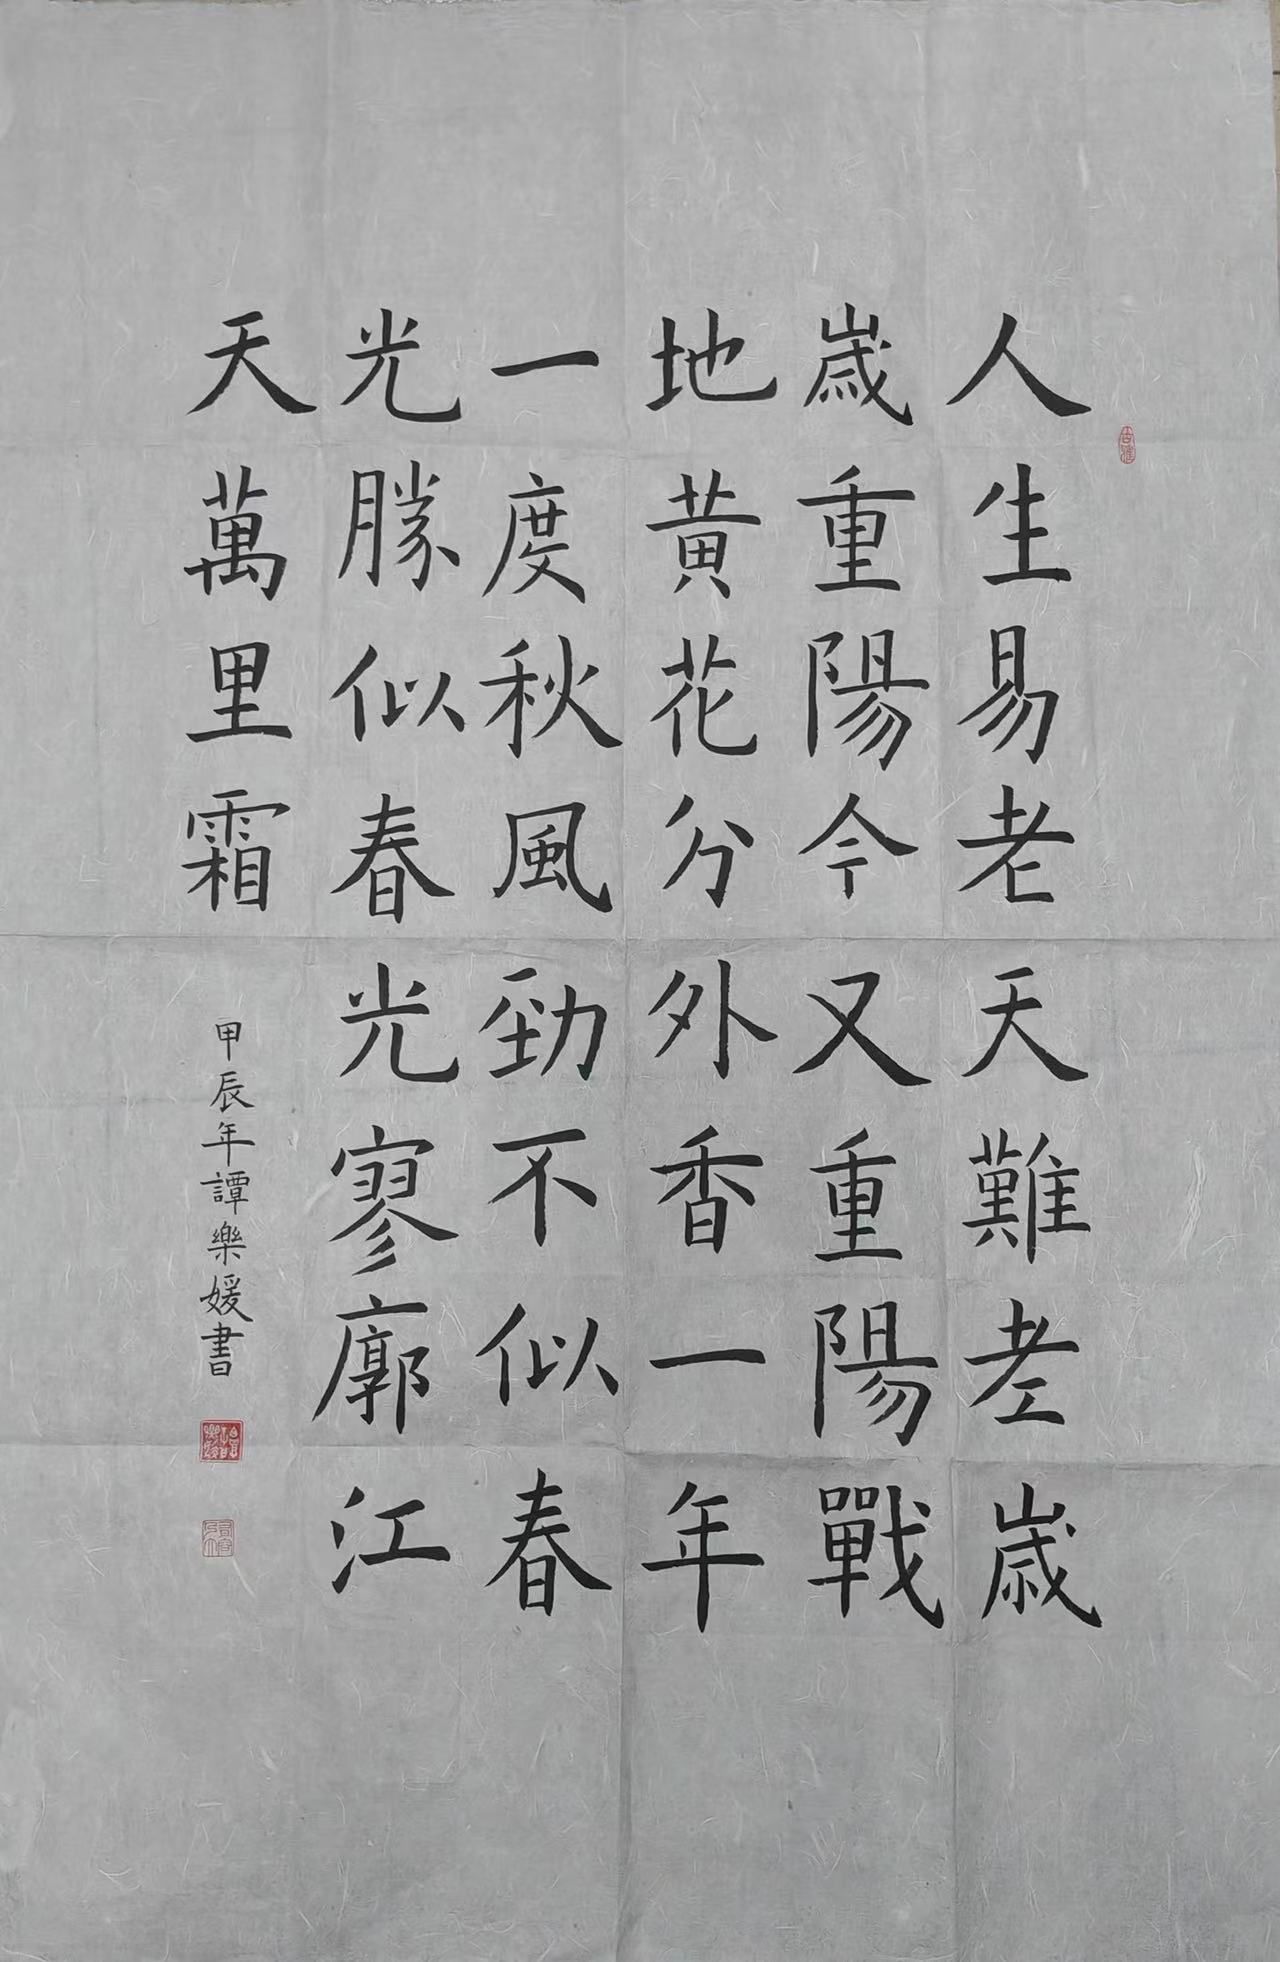 人生易老天難老歲
歲重陽今又重陽戰
地黃花分外香一年
一度秋風勁不似春
光勝似春光寥廓江
天萬里霜
甲辰年譚樂媛書